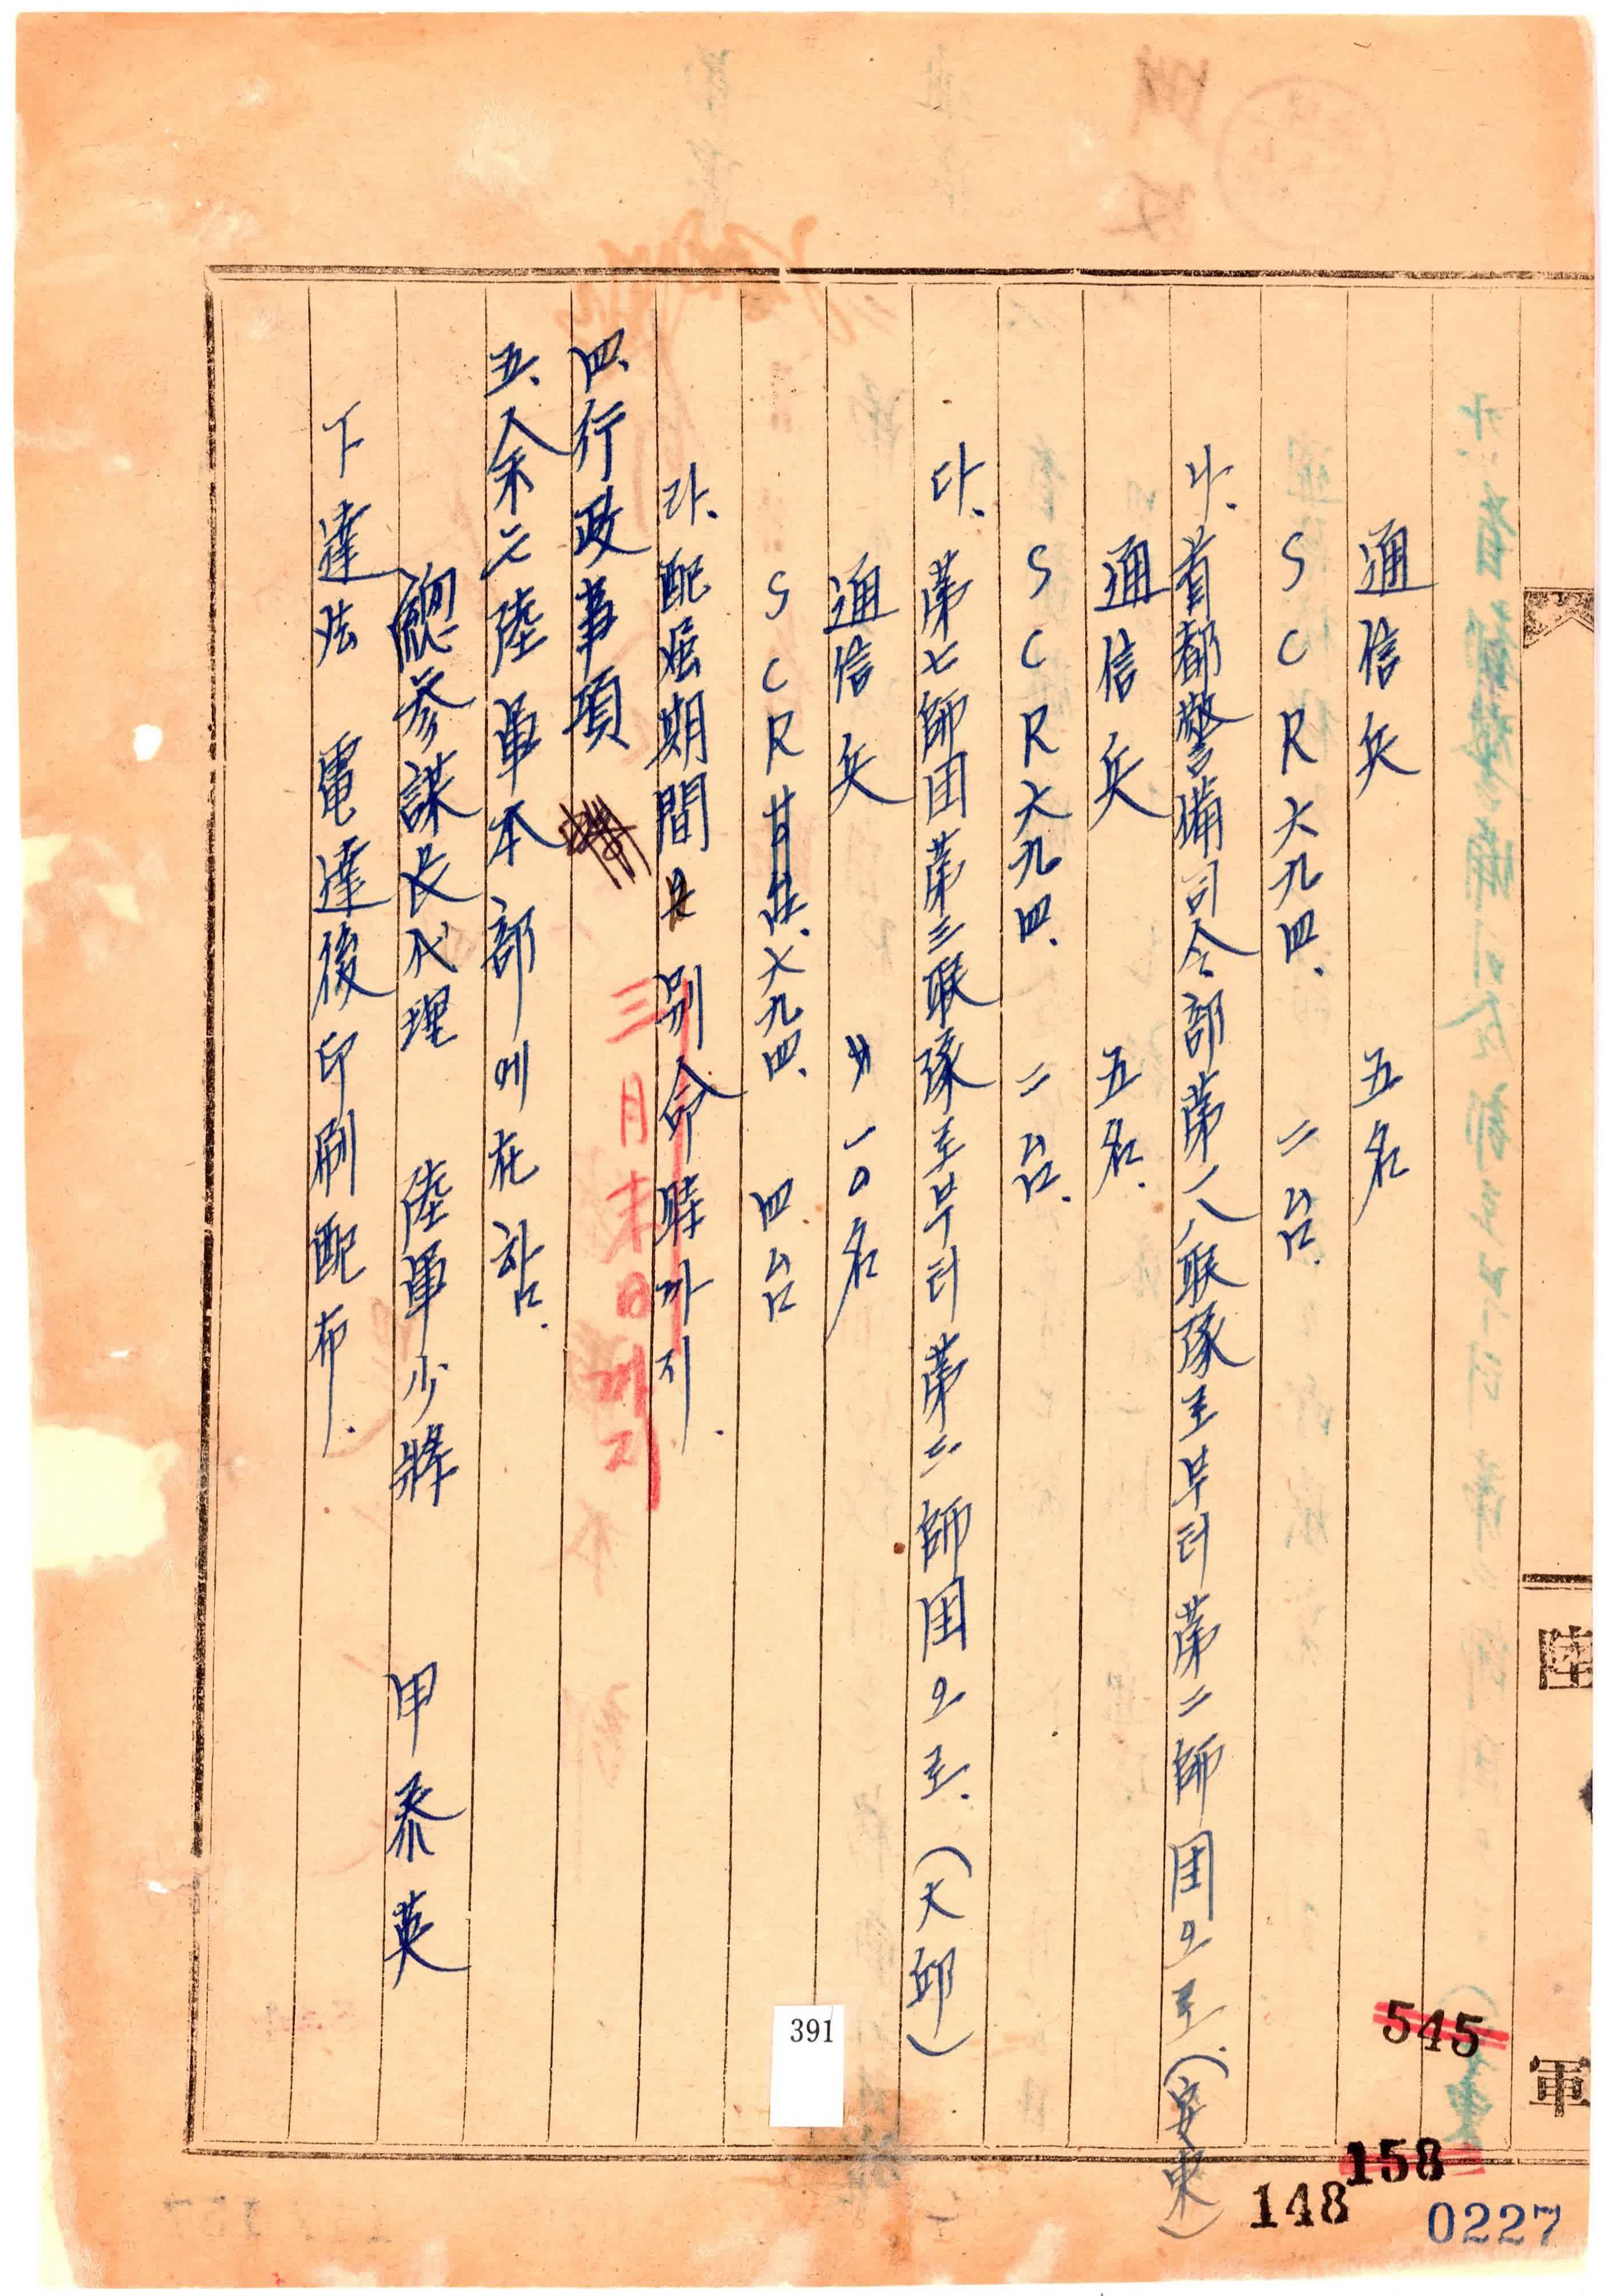 通信兵 五名
SCR 六九四. 二台.
나. 首都警備司令部第一八聯隊로부터 第二師団으로. (安東)
通信兵 五名.
SCR 六九四. 二台.
다. 第七師団第三聯隊로부터 第二師団으로. (大邱)
通信兵 一〇名
SCR 六九四. 四台
라. 配屬期間은 別命時까지.
三月末日까지
四、行政事項
五、余는 陸軍本部에 在함.
總參謀長代理 陸軍少將 申泰英
下達法 電達後印刷配布.
陸
軍
391
545
158
148
0227